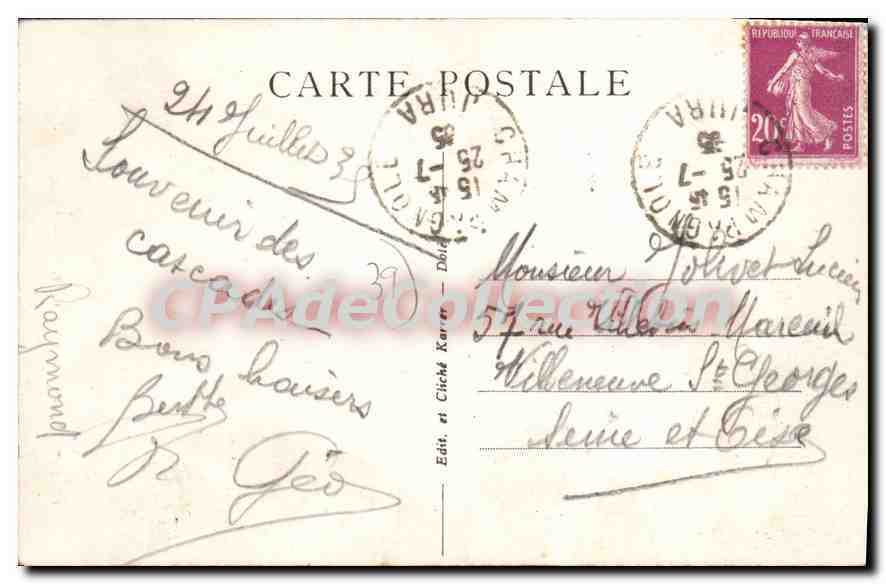 CARTE POSTALE
RÉPUBLIQUE FRANÇAISE
20c
POSTES
CHAMPAGNOLE
15 15
25 - 7
35
JURA
CHAMPAGNOLE
15 15
25 - 7
35
JURA
24 Juillet 35
Souvenir des
cascades
Bons baisers
Berthe
R Géo
Raymond
39
Edit. et Cliché Karrer — Dole
Monsieur Jolivet Lucien
57 rue Mareuil
Villeneuve St Georges
Seine et Oise
CPAdeCollection.com